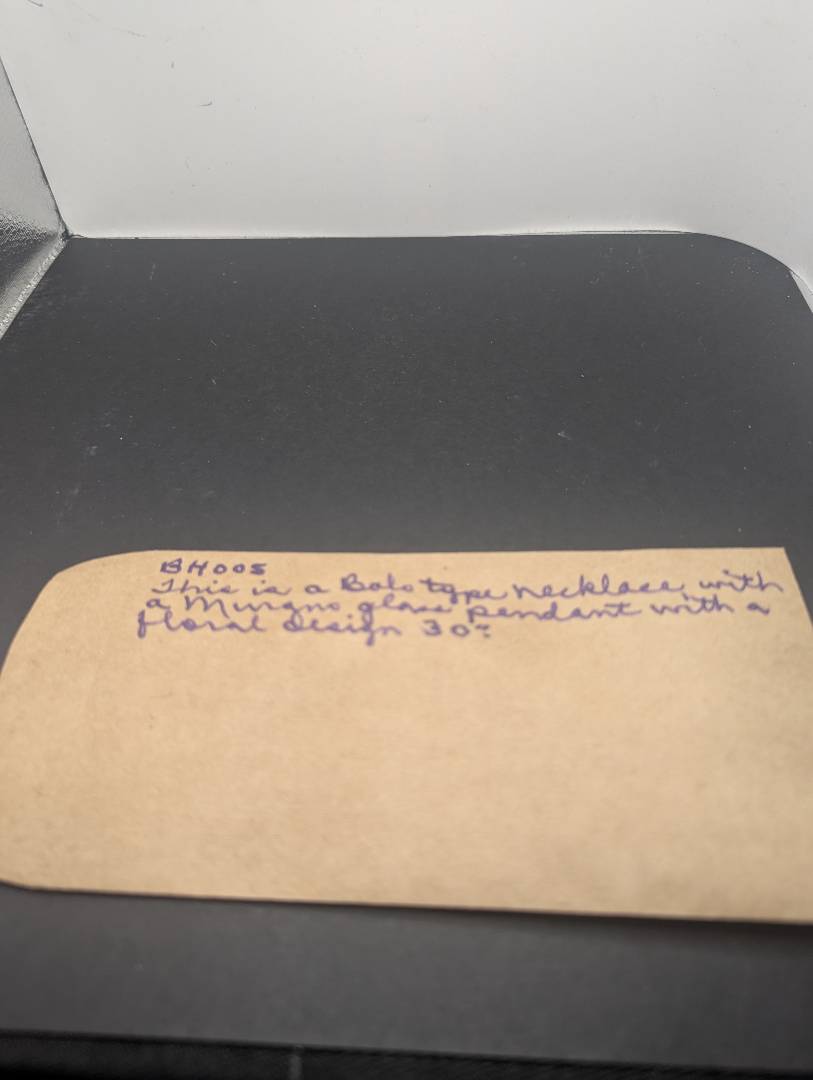 BH005
This is a Bolo type necklace with
a Murano glass pendant with a
floral design 30"